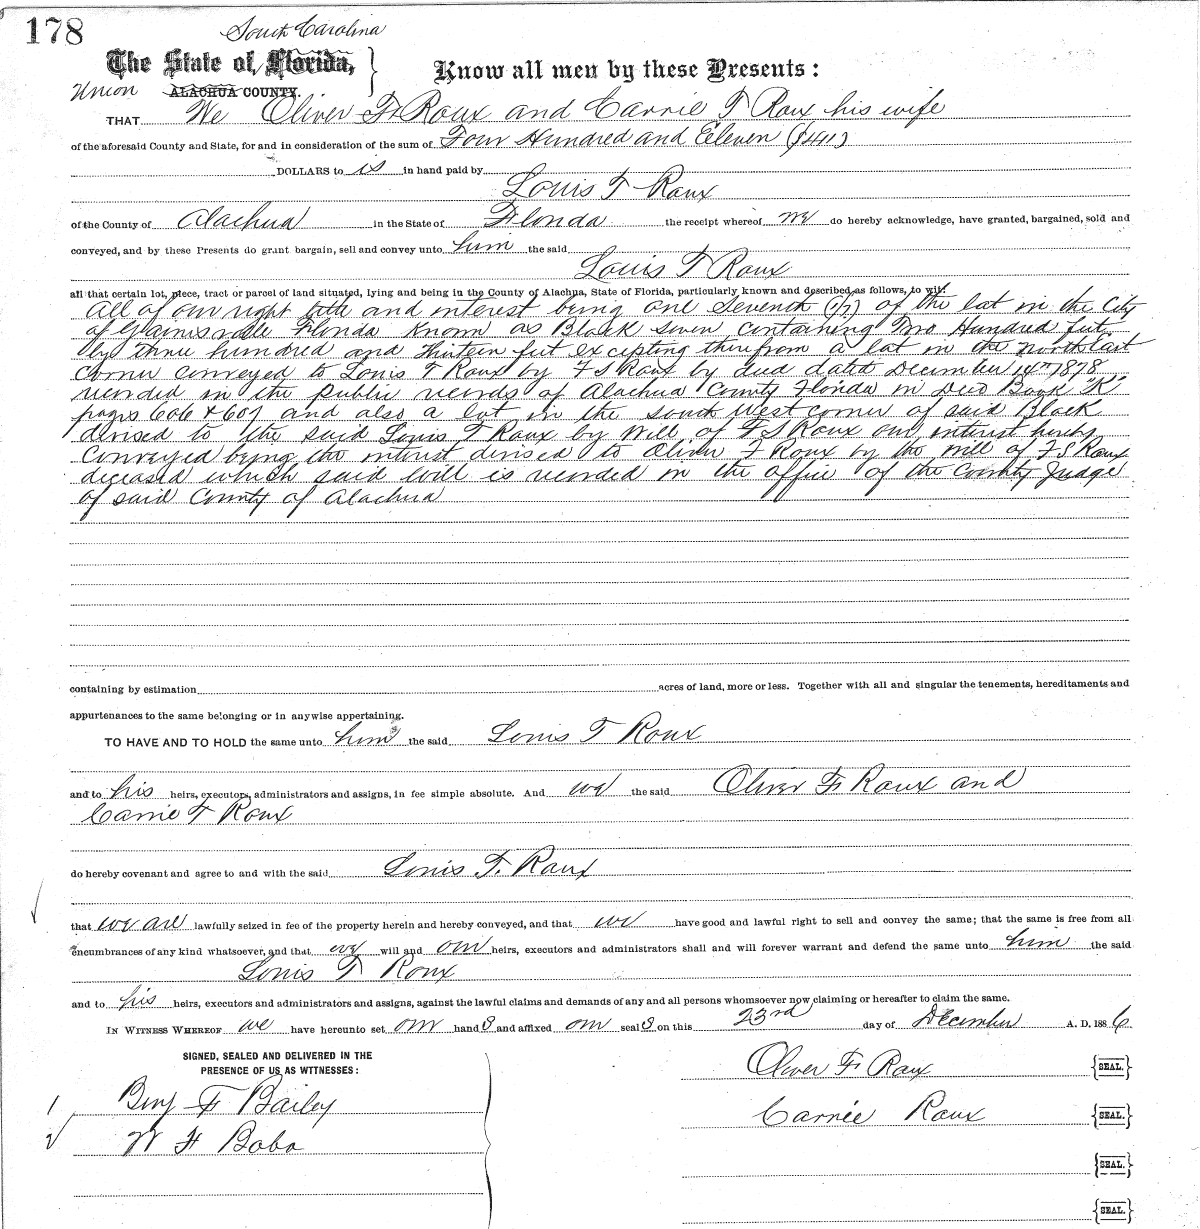 178
South Carolina
The State of Florida,
Know all men by these Presents:
Union ALACHUA COUNTY.
THAT We Oliver F Roux and Carrie T Roux his wife
of the aforesaid County and State, for and in consideration of the sum of Four Hundred and Eleven ($411)
DOLLARS to us in hand paid by
Louis T Roux
of the County of Alachua in the State of Florida the receipt whereof we do hereby acknowledge, have granted, bargained, sold and
conveyed, and by these Presents do grant bargain, sell and convey unto him the said
Louis T Roux
all that certain lot, piece, tract or parcel of land situated, lying and being in the County of Alachua, State of Florida, particularly known and described as follows, to wit:
All of our right title and interest being one Seventh (1/7) of the lot in the City
of Gainesville Florida Known as Block seven containing Two Hundred feet
by three hundred and thirteen feet excepting therefrom a lot in the North East
corner conveyed to Louis T Roux by F S Roux by deed dated December 14th 1878
recorded in the public records of Alachua County Florida in Deed Book "K"
pages 606 & 607 and also a lot in the South West corner of said Block
devised to the said Louis T Roux by Will of F S Roux our interest hereby
conveyed being the interest devised to Oliver F Roux by the will of F S Roux
deceased which said will is recorded in the office of the County Judge
of said County of Alachua
containing by estimation acres of land, more or less. Together with all and singular the tenements, hereditaments and
appurtenances to the same belonging or in anywise appertaining.
TO HAVE AND TO HOLD the same unto him the said Louis T Roux
and to his heirs, executors, administrators and assigns, in fee simple absolute. And we the said Oliver F Roux and
Carrie T Roux
do hereby covenant and agree to and with the said Louis T. Roux
that we are lawfully seized in fee of the property herein and hereby conveyed, and that we have good and lawful right to sell and convey the same; that the same is free from all
encumbrances of any kind whatsoever, and that we will and our heirs, executors and administrators shall and will forever warrant and defend the same unto him the said
Louis T Roux
and to his heirs, executors and administrators and assigns, against the lawful claims and demands of any and all persons whomsoever now claiming or hereafter to claim the same.
IN WITNESS WHEREOF we have hereunto set our hand s and affixed our seal s on this 23rd day of December A. D. 188 6
SIGNED, SEALED AND DELIVERED IN THE
PRESENCE OF US AS WITNESSES:
Oliver F Roux SEAL.
1 Benj F Bailey
Carrie Roux SEAL.
2 W F Bobo
SEAL.
SEAL.